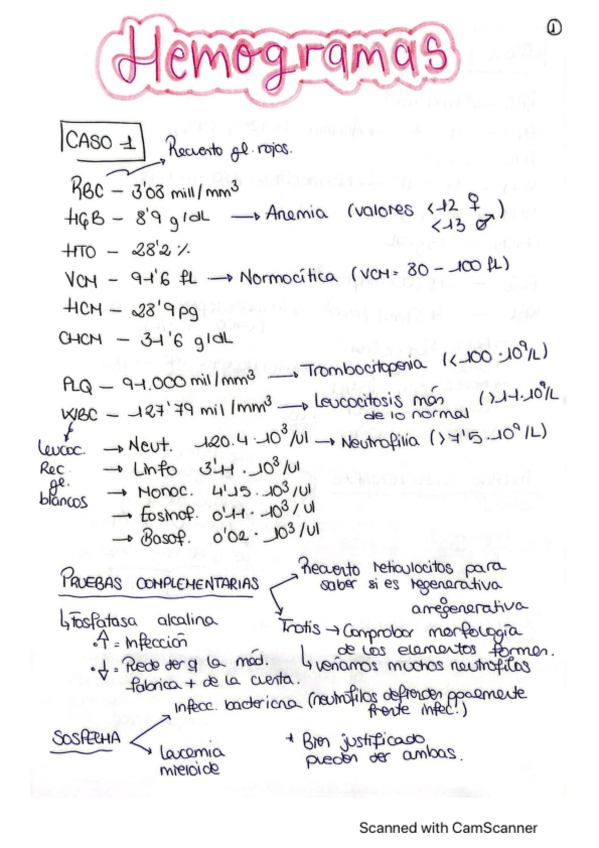 ①
Hemogramas
CASO 1
Recuento gl. rojos.
RBC – 3'03 mill/mm³
HGB – 8'9 g/dL → Anemia (valores <12 ♀
<13 ♂)
HTO – 28'2 %
VCM – 91'6 fL → Normocítica (VCM = 80 – 100 fL)
HCM – 28'9 pg
CHCM – 31'6 g/dL
PLQ – 91.000 mil/mm³ → Trombocitopenia (<100·10⁹/L)
WBC – 127'79 mil/mm³ → Leucocitosis más (>11·10⁹/L
de lo normal
Leucoc.
Rec.
gl.
blancos
→ Neut. 120.4·10³/ul → Neutrofilia (>7'5·10⁹/L)
→ Linfo 3'11·10³/ul
→ Monoc. 4'15·10³/ul
→ Eosinof. 0'11·10³/ul
→ Basof. 0'02·10³/ul
PRUEBAS COMPLEMENTARIAS
Recuento reticulocitos para
saber si es regenerativa
o
arregenerativa
↳ Fosfatasa alcalina
·↑ = Infección
·↓ = Puede ser q la méd.
fabrica + de la cuenta.
Frotis → Comprobar morfología
de los elementos formes.
↳ veríamos muchos neutrófilos
SOSPECHA
Infecc. bacteriana (neutrófilos defienden ppalmente
frente infec.!)
Leucemia
mieloide
* Bien justificado
pueden ser ambas.
Scanned with CamScanner